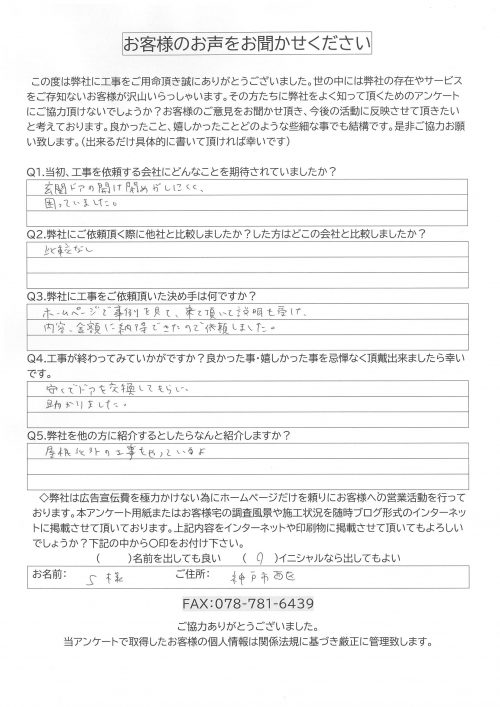 お客様のお声をお聞かせください
この度は弊社に工事をご用命頂き誠にありがとうございました。世の中には弊社の存在やサービス
をご存知ないお客様が沢山いらっしゃいます。その方たちに弊社をよく知って頂くためのアンケート
にご協力頂けないでしょうか？お客様のご意見をお聞かせ頂き、今後の活動に反映させて頂きたい
と考えております。良かったこと、嬉しかったことどのような些細な事でも結構です。是非ご協力お願
い致します。（出来るだけ具体的に書いて頂ければ幸いです）
Q1.当初、工事を依頼する会社にどんなことを期待されていましたか？
玄関ドアの開け閉めがしにくく、
困っていました。
Q2.弊社にご依頼頂く際に他社と比較しましたか？した方はどこの会社と比較しましたか？
比較なし
Q3.弊社に工事をご依頼頂いた決め手は何ですか？
ホームページで事例を見て、来て頂いて説明を受け、
内容、金額に納得できたので依頼しました。
Q4.工事が終わってみていかがですか？良かった事・嬉しかった事を忌憚なく頂戴出来ましたら幸い
です。
安くでドアを交換してもらい、
助かりました。
Q5.弊社を他の方に紹介するとしたらなんと紹介しますか？
屋根以外の工事もやっているよ
◇弊社は広告宣伝費を極力かけない為にホームページだけを頼りにお客様への営業活動を行って
おります。本アンケート用紙またはお客様宅の調査風景や施工状況を随時ブログ形式のインターネッ
トに掲載させて頂いております。上記内容をインターネットや印刷物に掲載させて頂いてもよろしい
でしょうか？下記の中から〇印をお付け下さい。
（　　）名前を出しても良い　（ ○ ）イニシャルなら出してもよい
お名前： S 様 ご住所： 神戸市西区
FAX：078-781-6439
ご協力ありがとうございました。
当アンケートで取得したお客様の個人情報は関係法規に基づき厳正に管理致します。